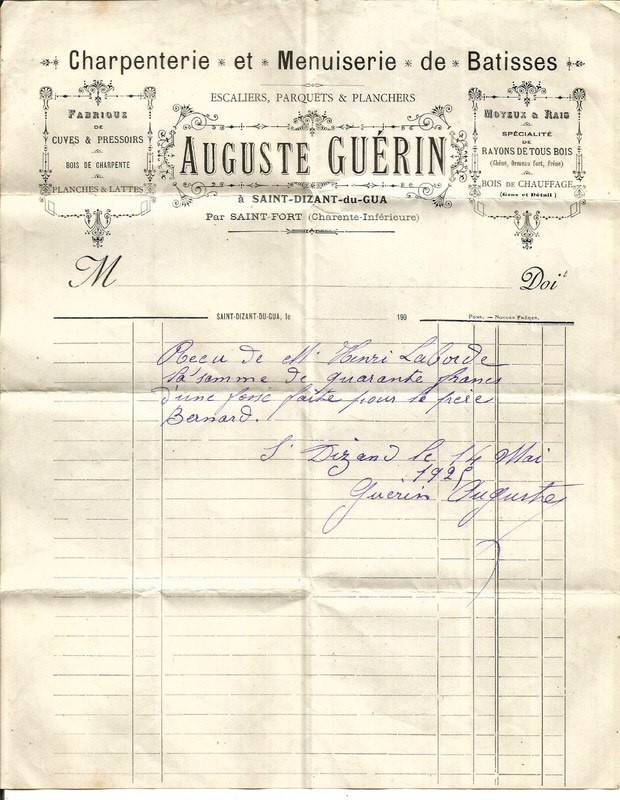 Charpenterie * et * Menuiserie * de * Batisses
ESCALIERS, PARQUETS & PLANCHERS
FABRIQUE
DE
CUVES & PRESSOIRS
BOIS DE CHARPENTE
PLANCHES & LATTES
AUGUSTE GUÉRIN
à SAINT-DIZANT-du-GUA
Par SAINT-FORT (Charente-Inférieure)
MOYEUX & RAIS
SPÉCIALITÉ
DE
RAYONS DE TOUS BOIS
(Chêne, Ormeau fort, Frêne)
BOIS DE CHAUFFAGE
(Gros et Détail)
M Doit
SAINT-DIZANT-DU-GUA, le 190
Pons. — Noguès Frères.
Recu de Mr Henri Laborde
la somme de quarante francs
d'une fosse faite pour le frère
Bernard.
St Dizand le 14 Mai
1925
Guérin Auguste